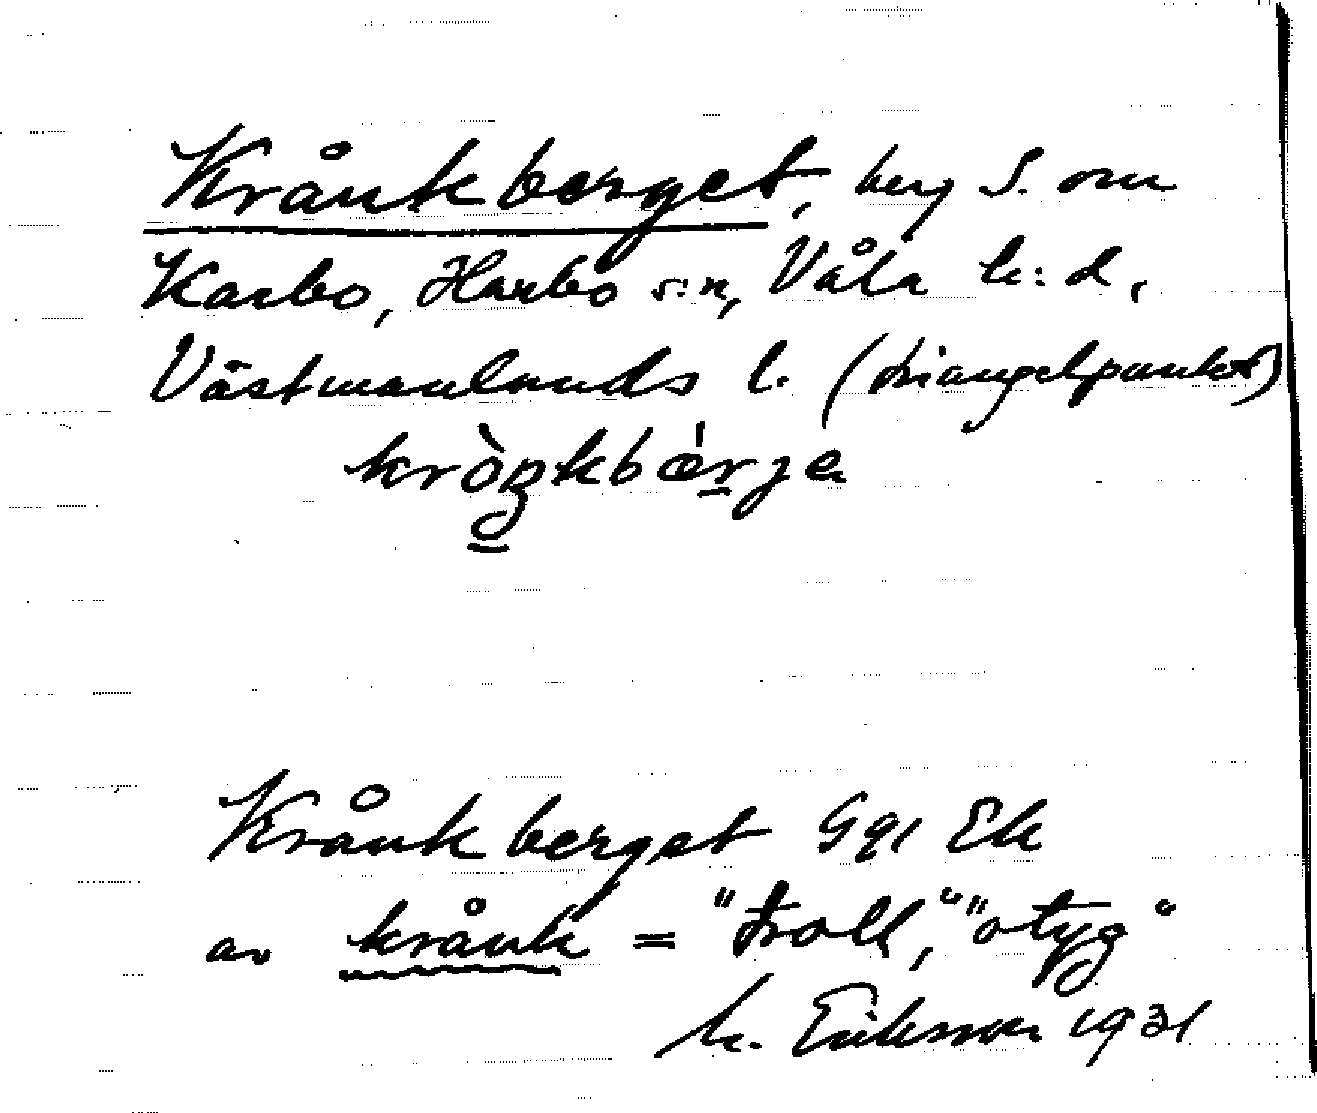 Krånkberget, berg S. om
Karbo, Harbo s:n, Våla h:d,
Västmanlands l. (triangelpunkt)
krὸŋkbærje
Krånkberget Ggl Ek
av krånk = "troll," "otyg"
M. Eriksson 1931